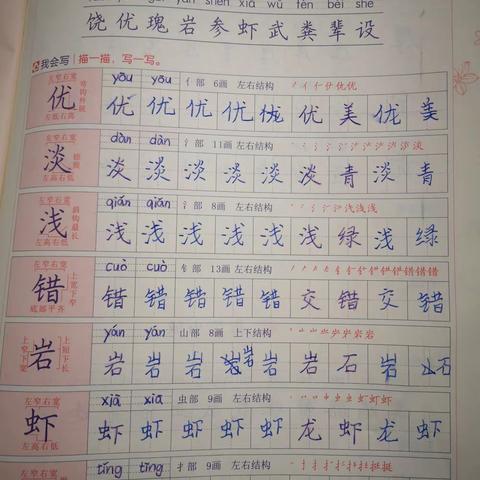 饶优瑰岩参虾武粪辈设
我会写 描一描,写一写。
左窄右宽 优 弯钩伸展 左低右高
yōu yōu 亻部 6画 左右结构
优 优 优 优 优 优 美 优 美
淡 左高右低
dàn dàn 氵部 11画 左右结构
淡 淡 淡 淡 淡 淡 青 淡 青
左窄右宽 浅 斜钩最长 左高右低
qiǎn qiǎn 氵部 8画 左右结构
浅 浅 浅 浅 浅 浅 绿 浅 绿
左窄右宽 错 上宽下窄 底部平齐
cuò cuò 钅部 13画 左右结构
错 错 错 错 错 交 错 交 错
上窄下宽 岩 上短下长
yán yán 山部 8画 上下结构
岩 岩 岩 岩 岩 石 岩 石
左窄右宽 虾 左高右低
xiā xiā 虫部 9画 左右结构
虾 虾 虾 虾 虾 龙 虾 龙 虾
左窄右宽
tǐng tǐng 扌部 9画 左右结构